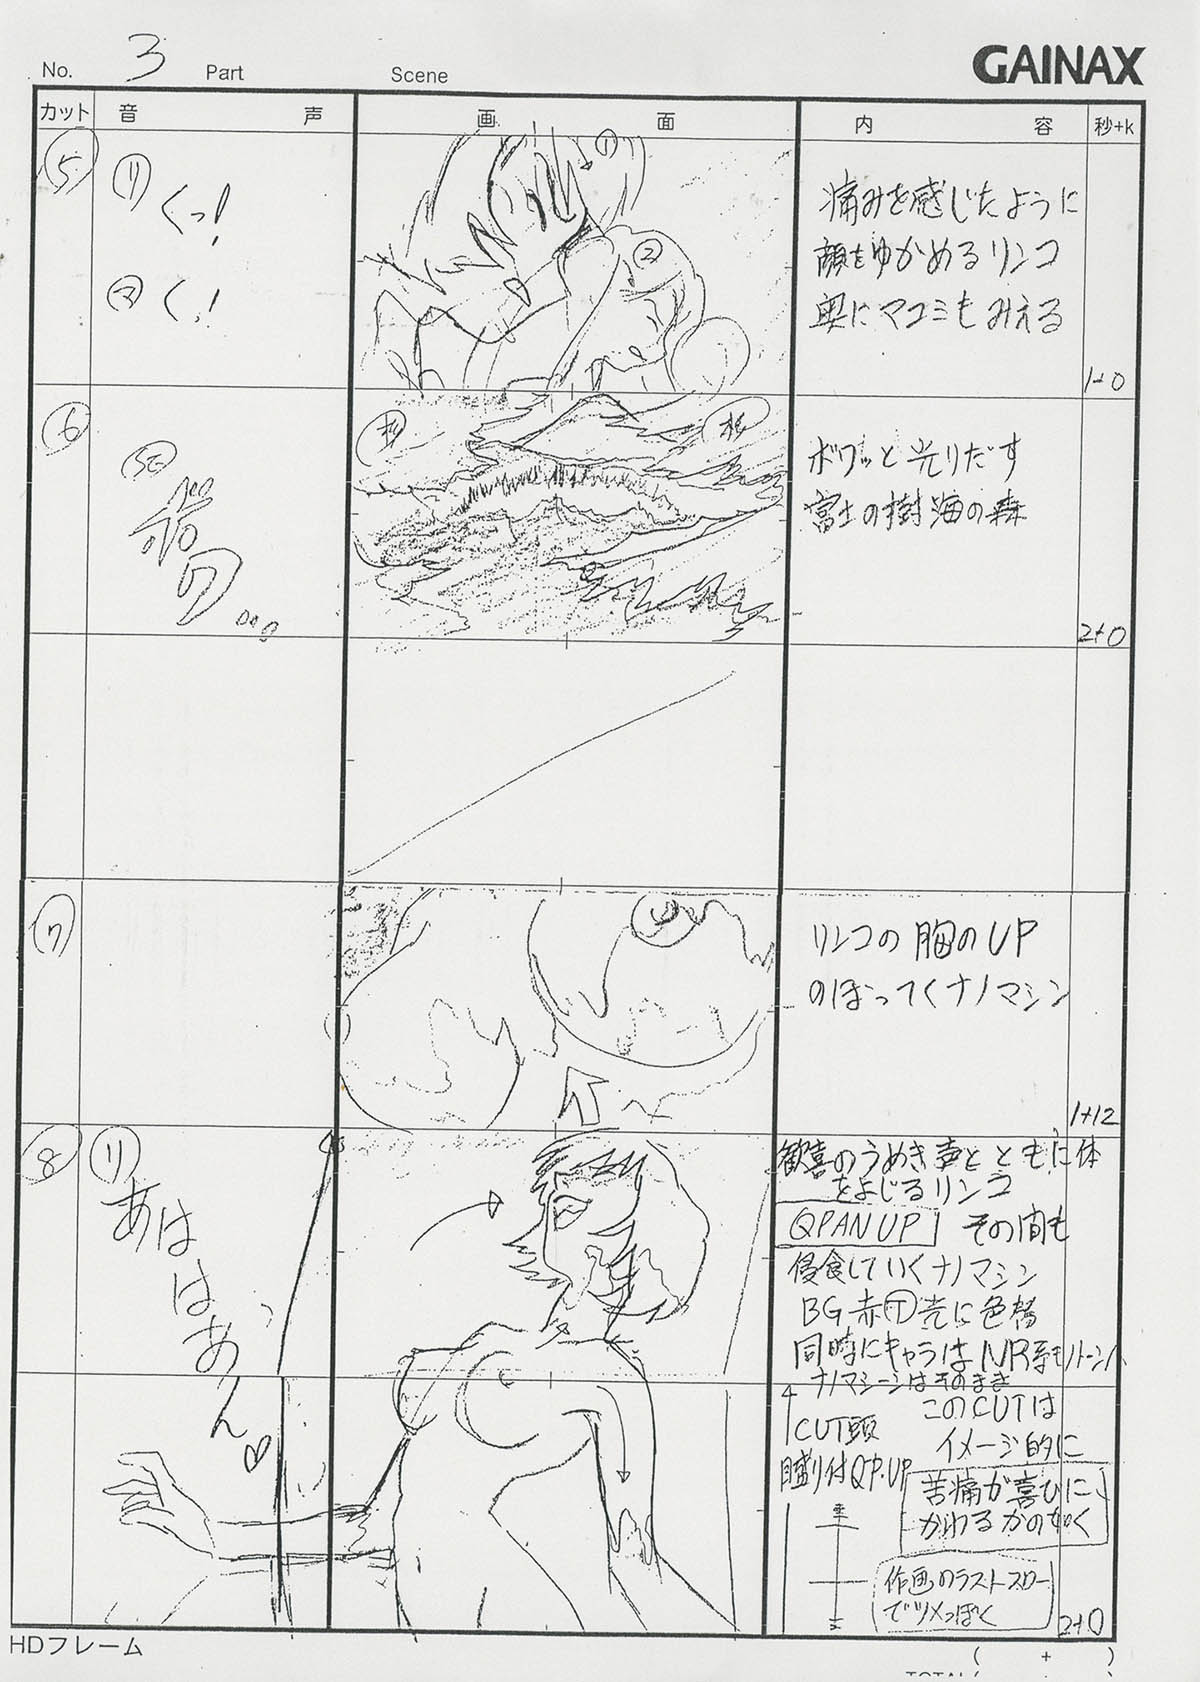 No. 3 Part Scene GAINAX
カット 音 声 画 面 内 容 秒+k
5
リ くっ!
マ く!
①
②
痛みを感じたように
顔をゆがめるリンコ
奥にマコミもみえる
1+0
6
SE
ボワッと光りだす
富士の樹海の森
2+0
7
リンコの胸のUP
のぼってくナノマシン
1+12
8
リ
あははあん♡
歓喜のうめき声とともに体
をよじるリンコ
QPAN UP その間も
侵食していくナノマシン
BG赤Ⓣ光に色替
同時にキャラはNR
ナノマシーンはそのまま
CUT頭
目盛り付QP.UP
このCUTは
イメージ的に
苦痛が喜びに
かわるかの如く
作画のラストスロー
でツメっぽく
2+0
HDフレーム
( + )
TOTAL(